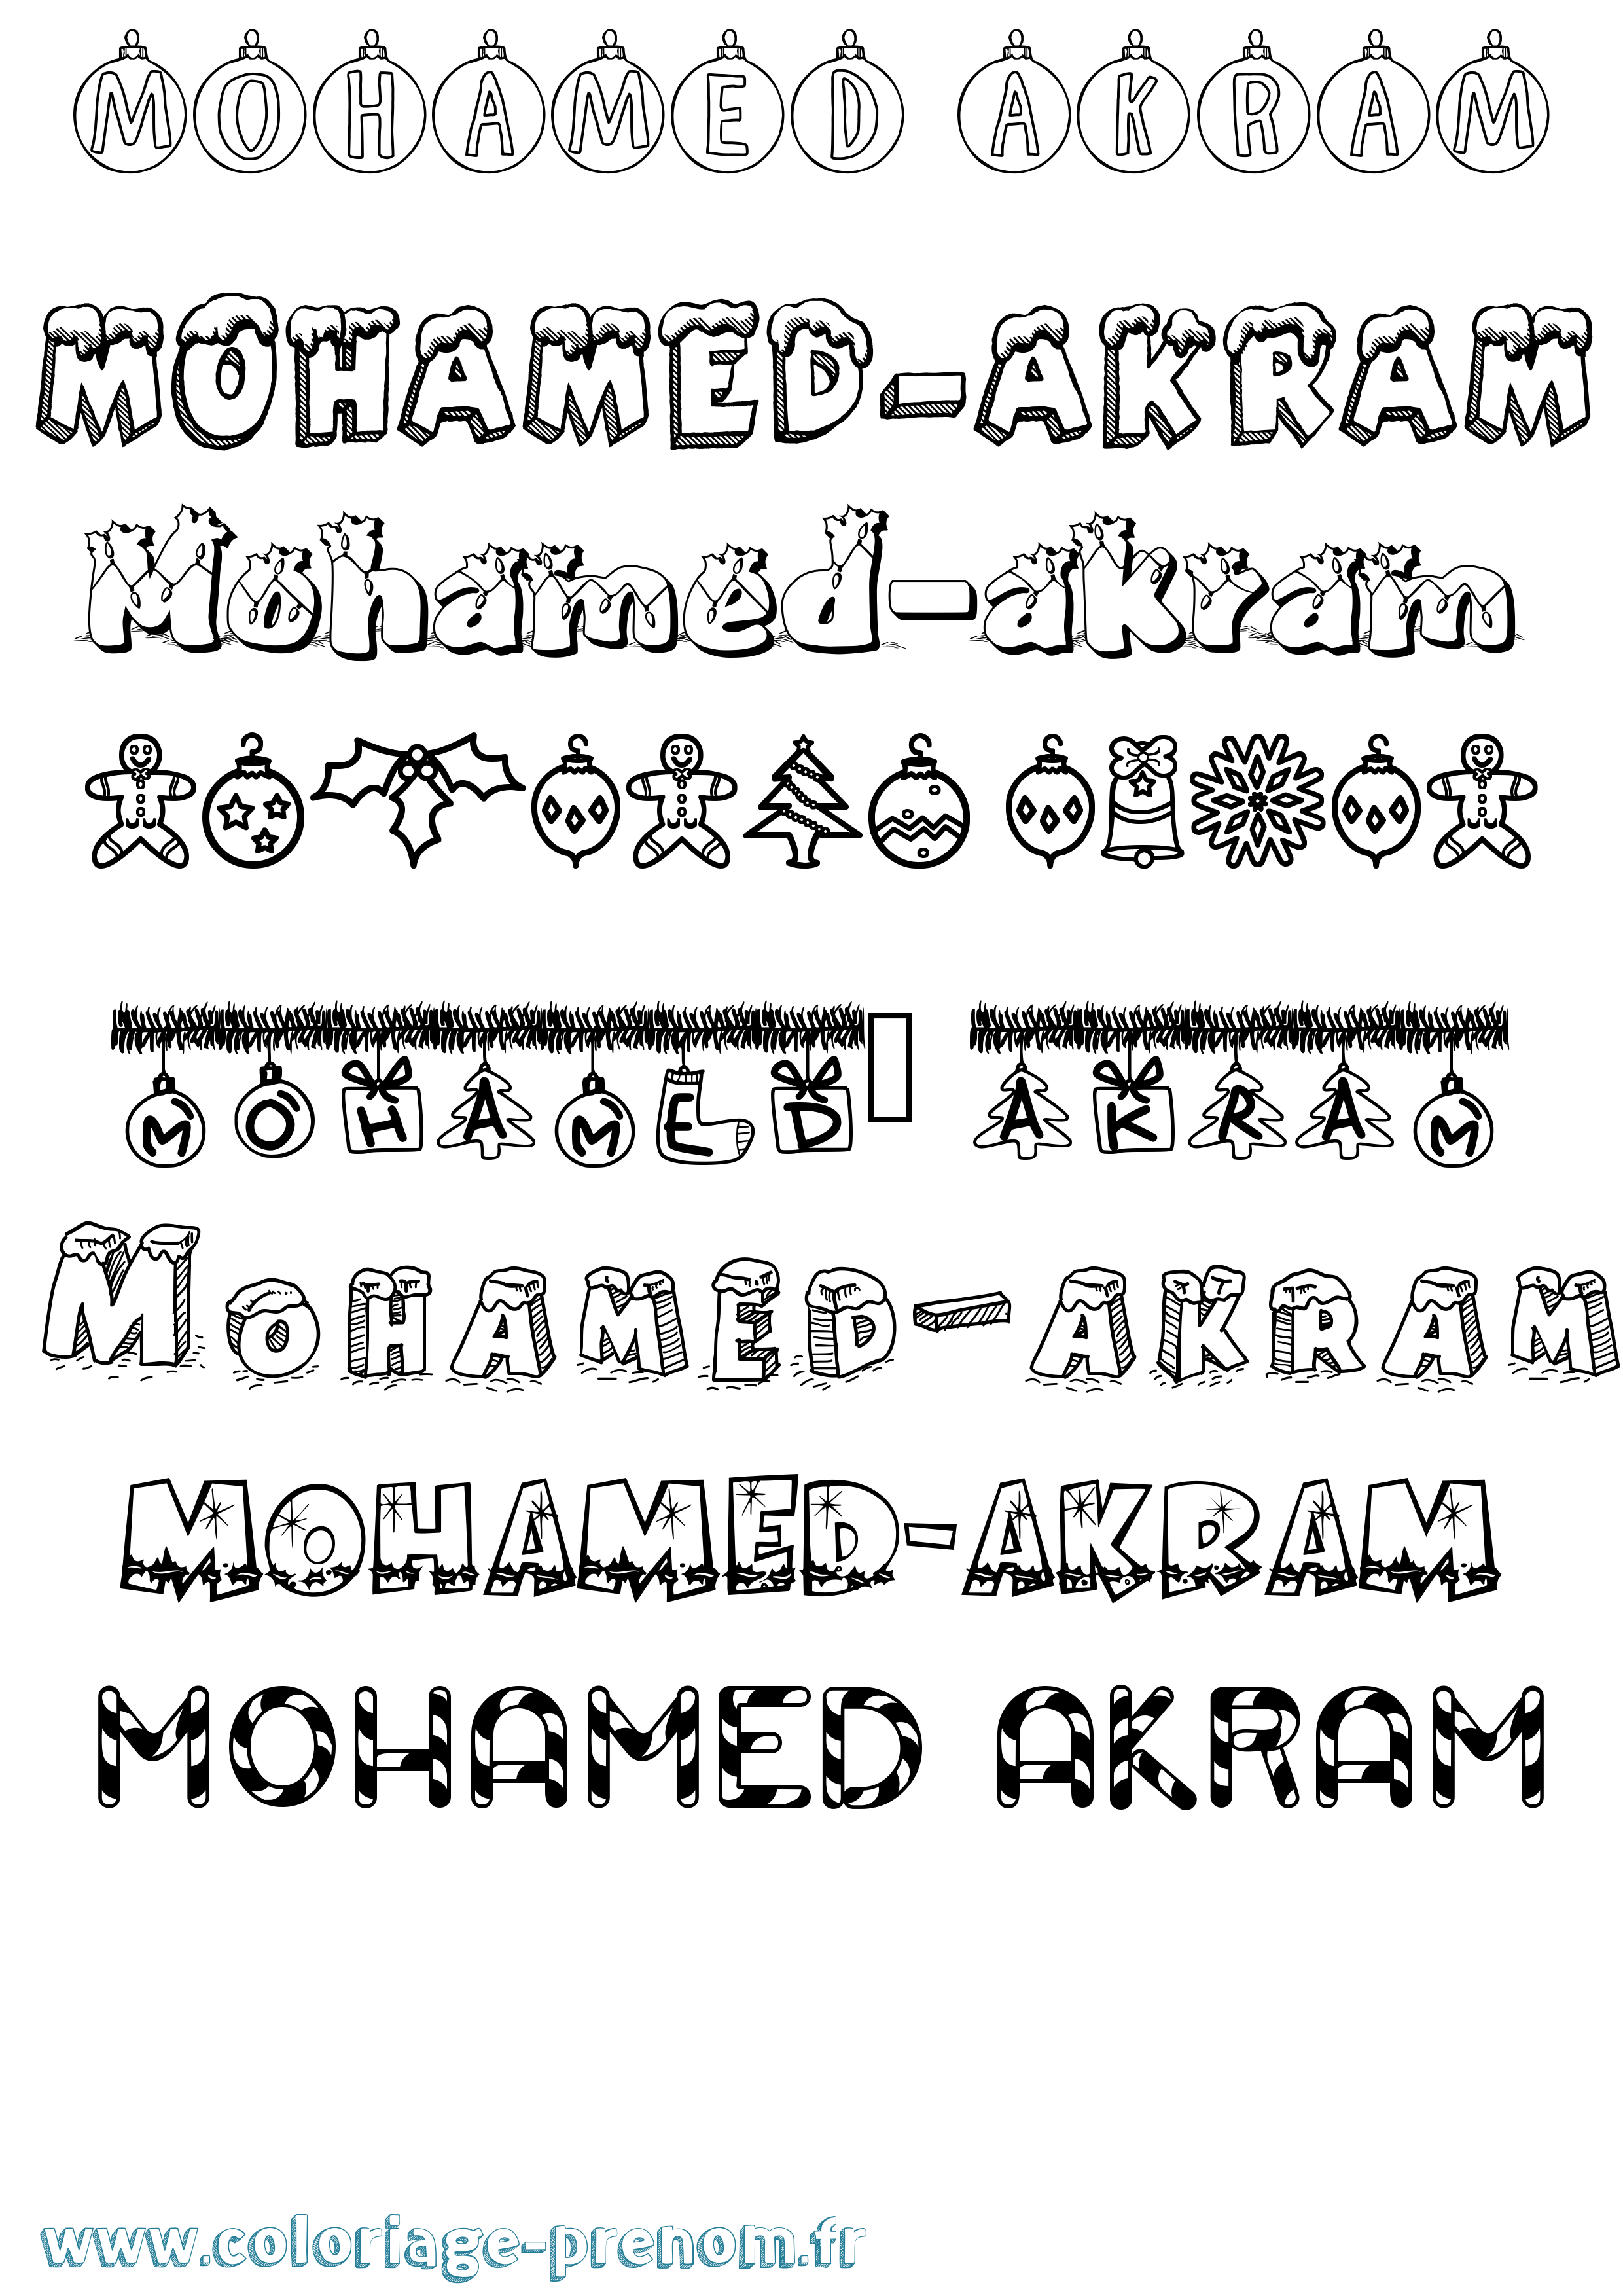 MOHAMED AKRAM
MOHAMED-AKRAM
Mohamed-akram
MOHAMED AKRAM
MOHAMED-AKRAM
MOHAMED-AKRAM
MOHAMED AKRAM
www.coloriage-prenom.fr